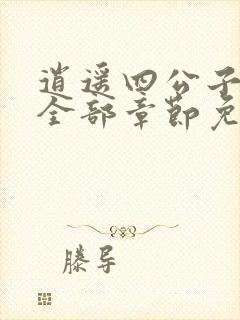 逍遥四公子
全部章节免
滕导